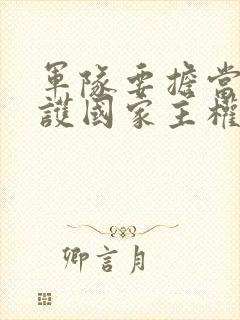 軍隊要擔當
護國家主權
卿言月